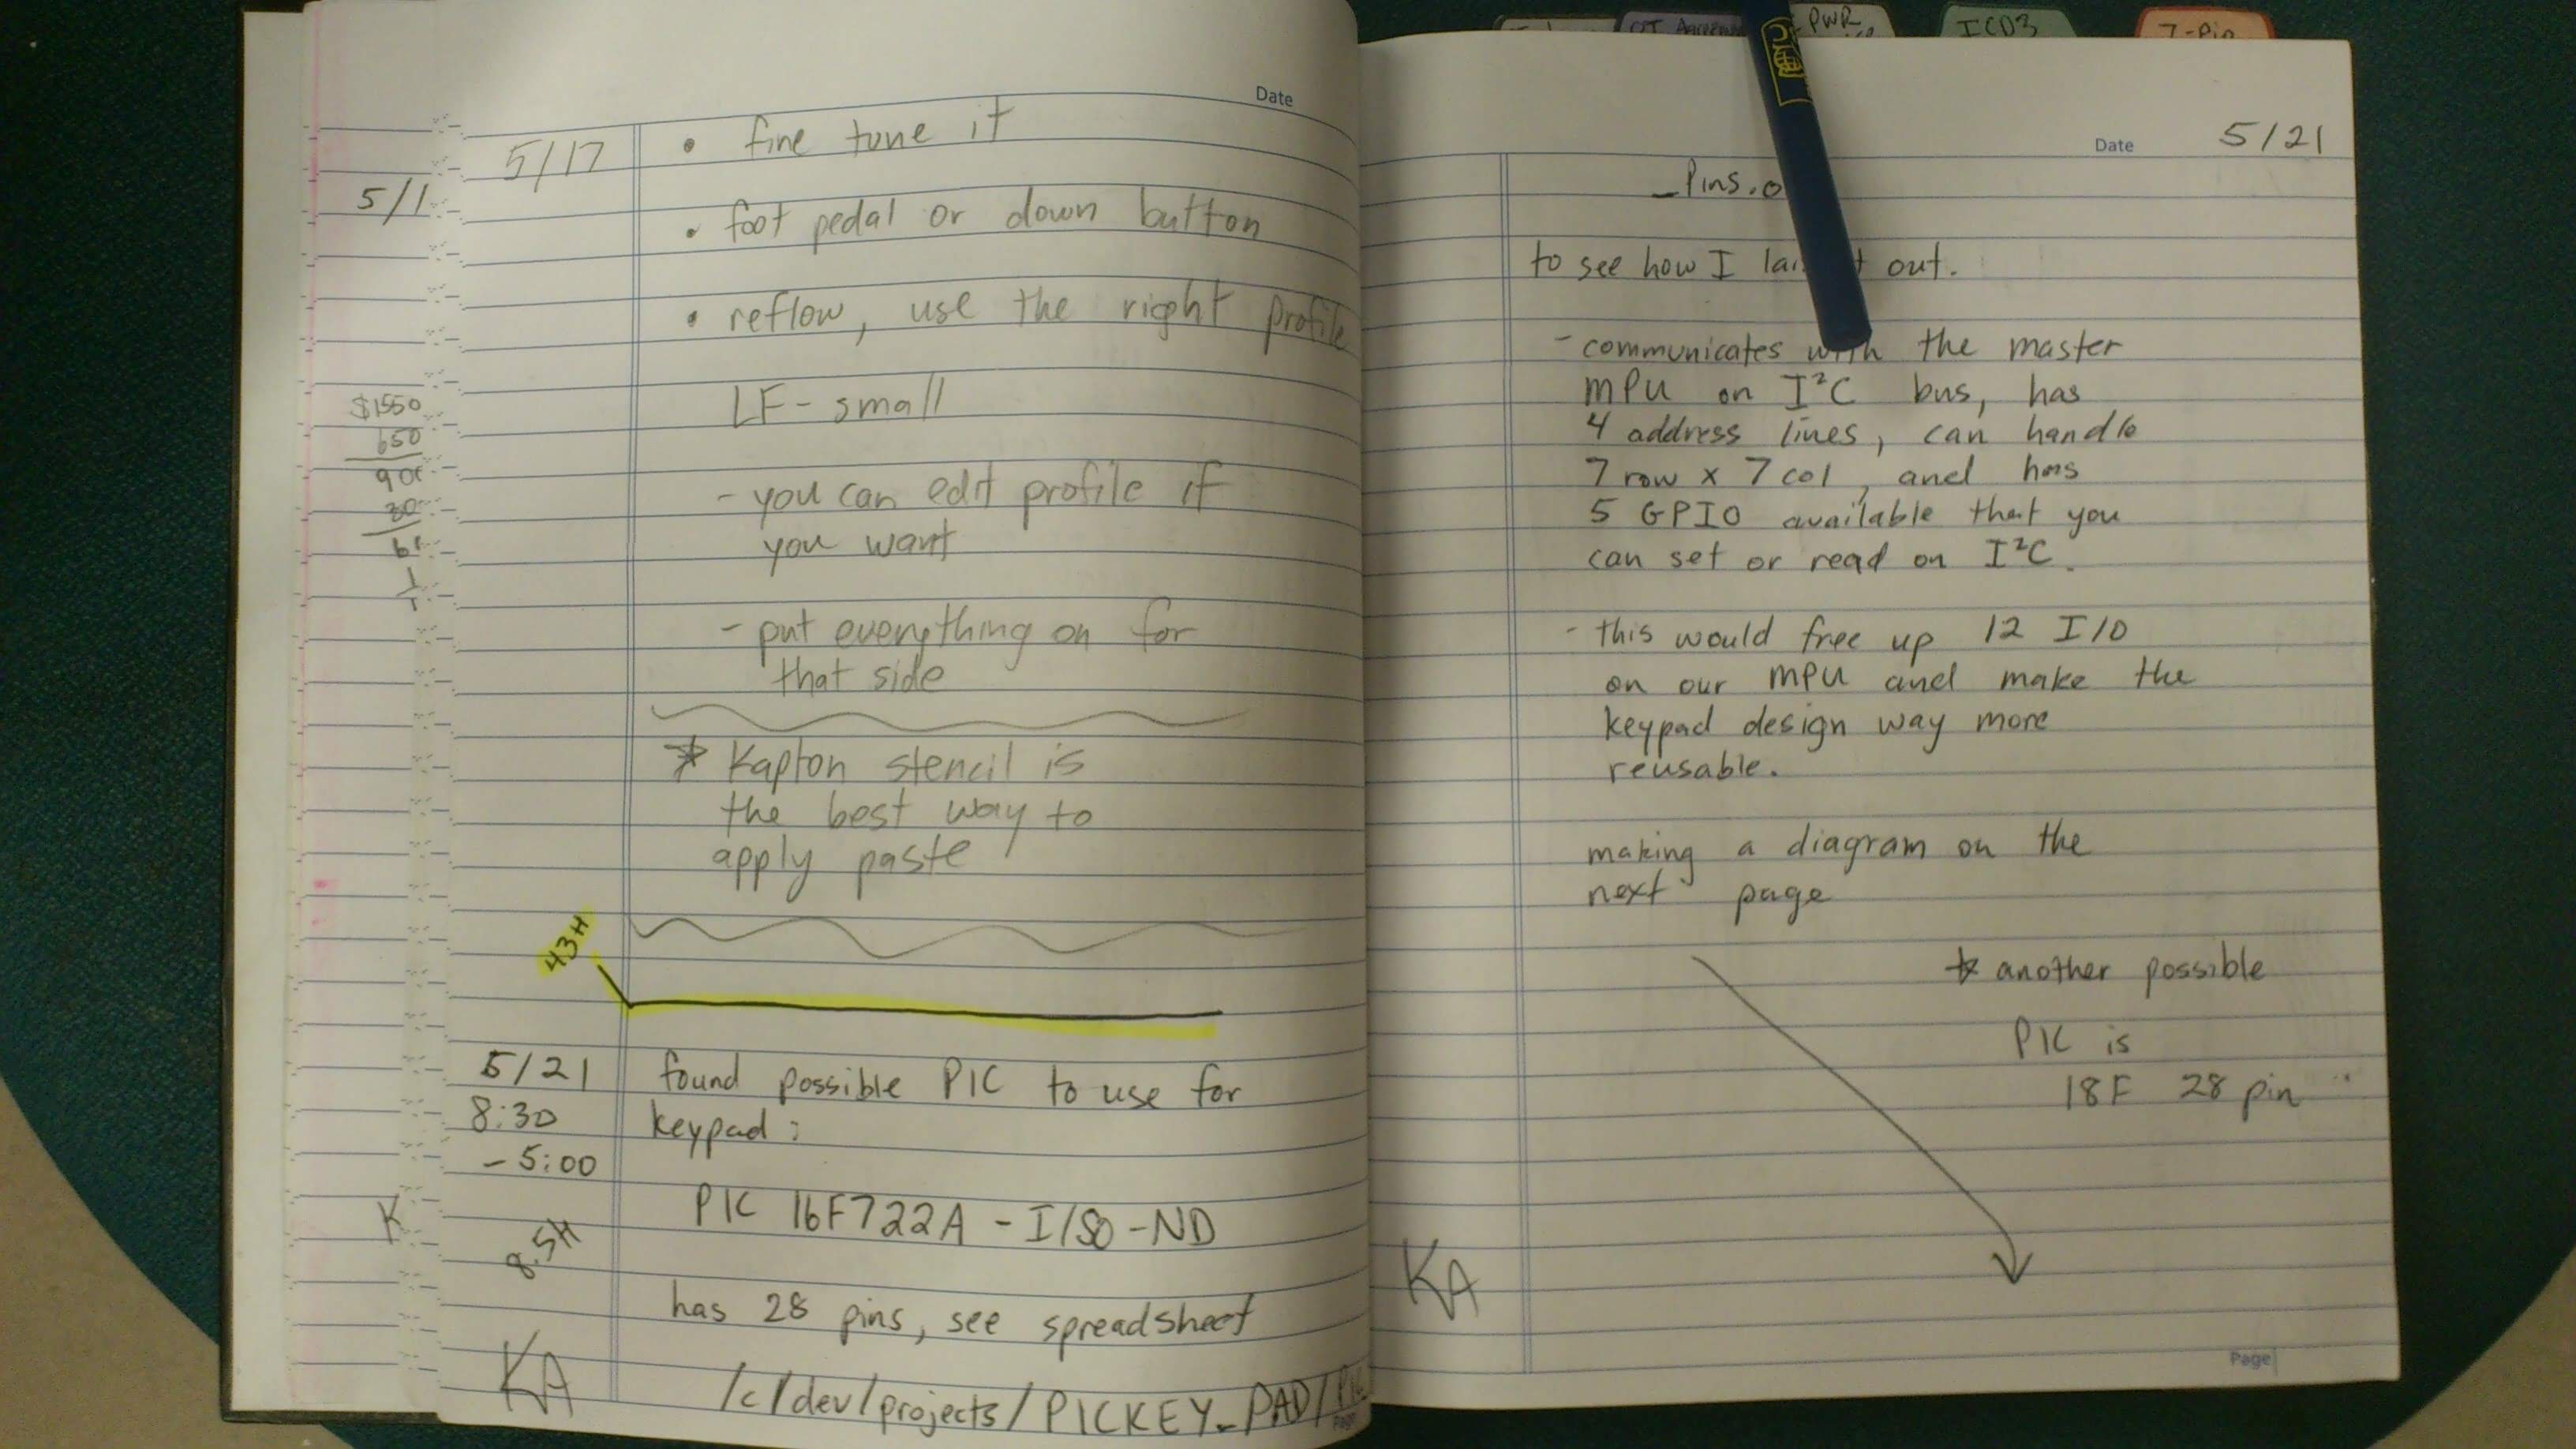 5/1
$1550
650
80
K
Date
5/17
• fine tune it
• foot pedal or down button
• reflow, use the right profile
LF - small
- you can edit profile if
you want
- put everything on for
that side
* Kapton stencil is
the best way to
apply paste
43H
5/21
8:30
- 5:00
8.5H
found possible PIC to use for
keypad:
PIC 16F722A - I/SO -ND
has 28 pins, see spreadsheet
KA
/c/dev/projects/PICKEY_PAD/
PWR
ICD3
7-Pin
Date 5/21
_Pins.o
to see how I out.
- communicates with the master
MPU on I²C bus, has
4 address lines, can handle
7 row x 7 col, and has
5 GPIO available that you
can set or read on I²C.
- this would free up 12 I/O
on our MPU and make the
keypad design way more
reusable.
making a diagram on the
next page
* another possible
PIC is
18F 28 pin
KA
Page